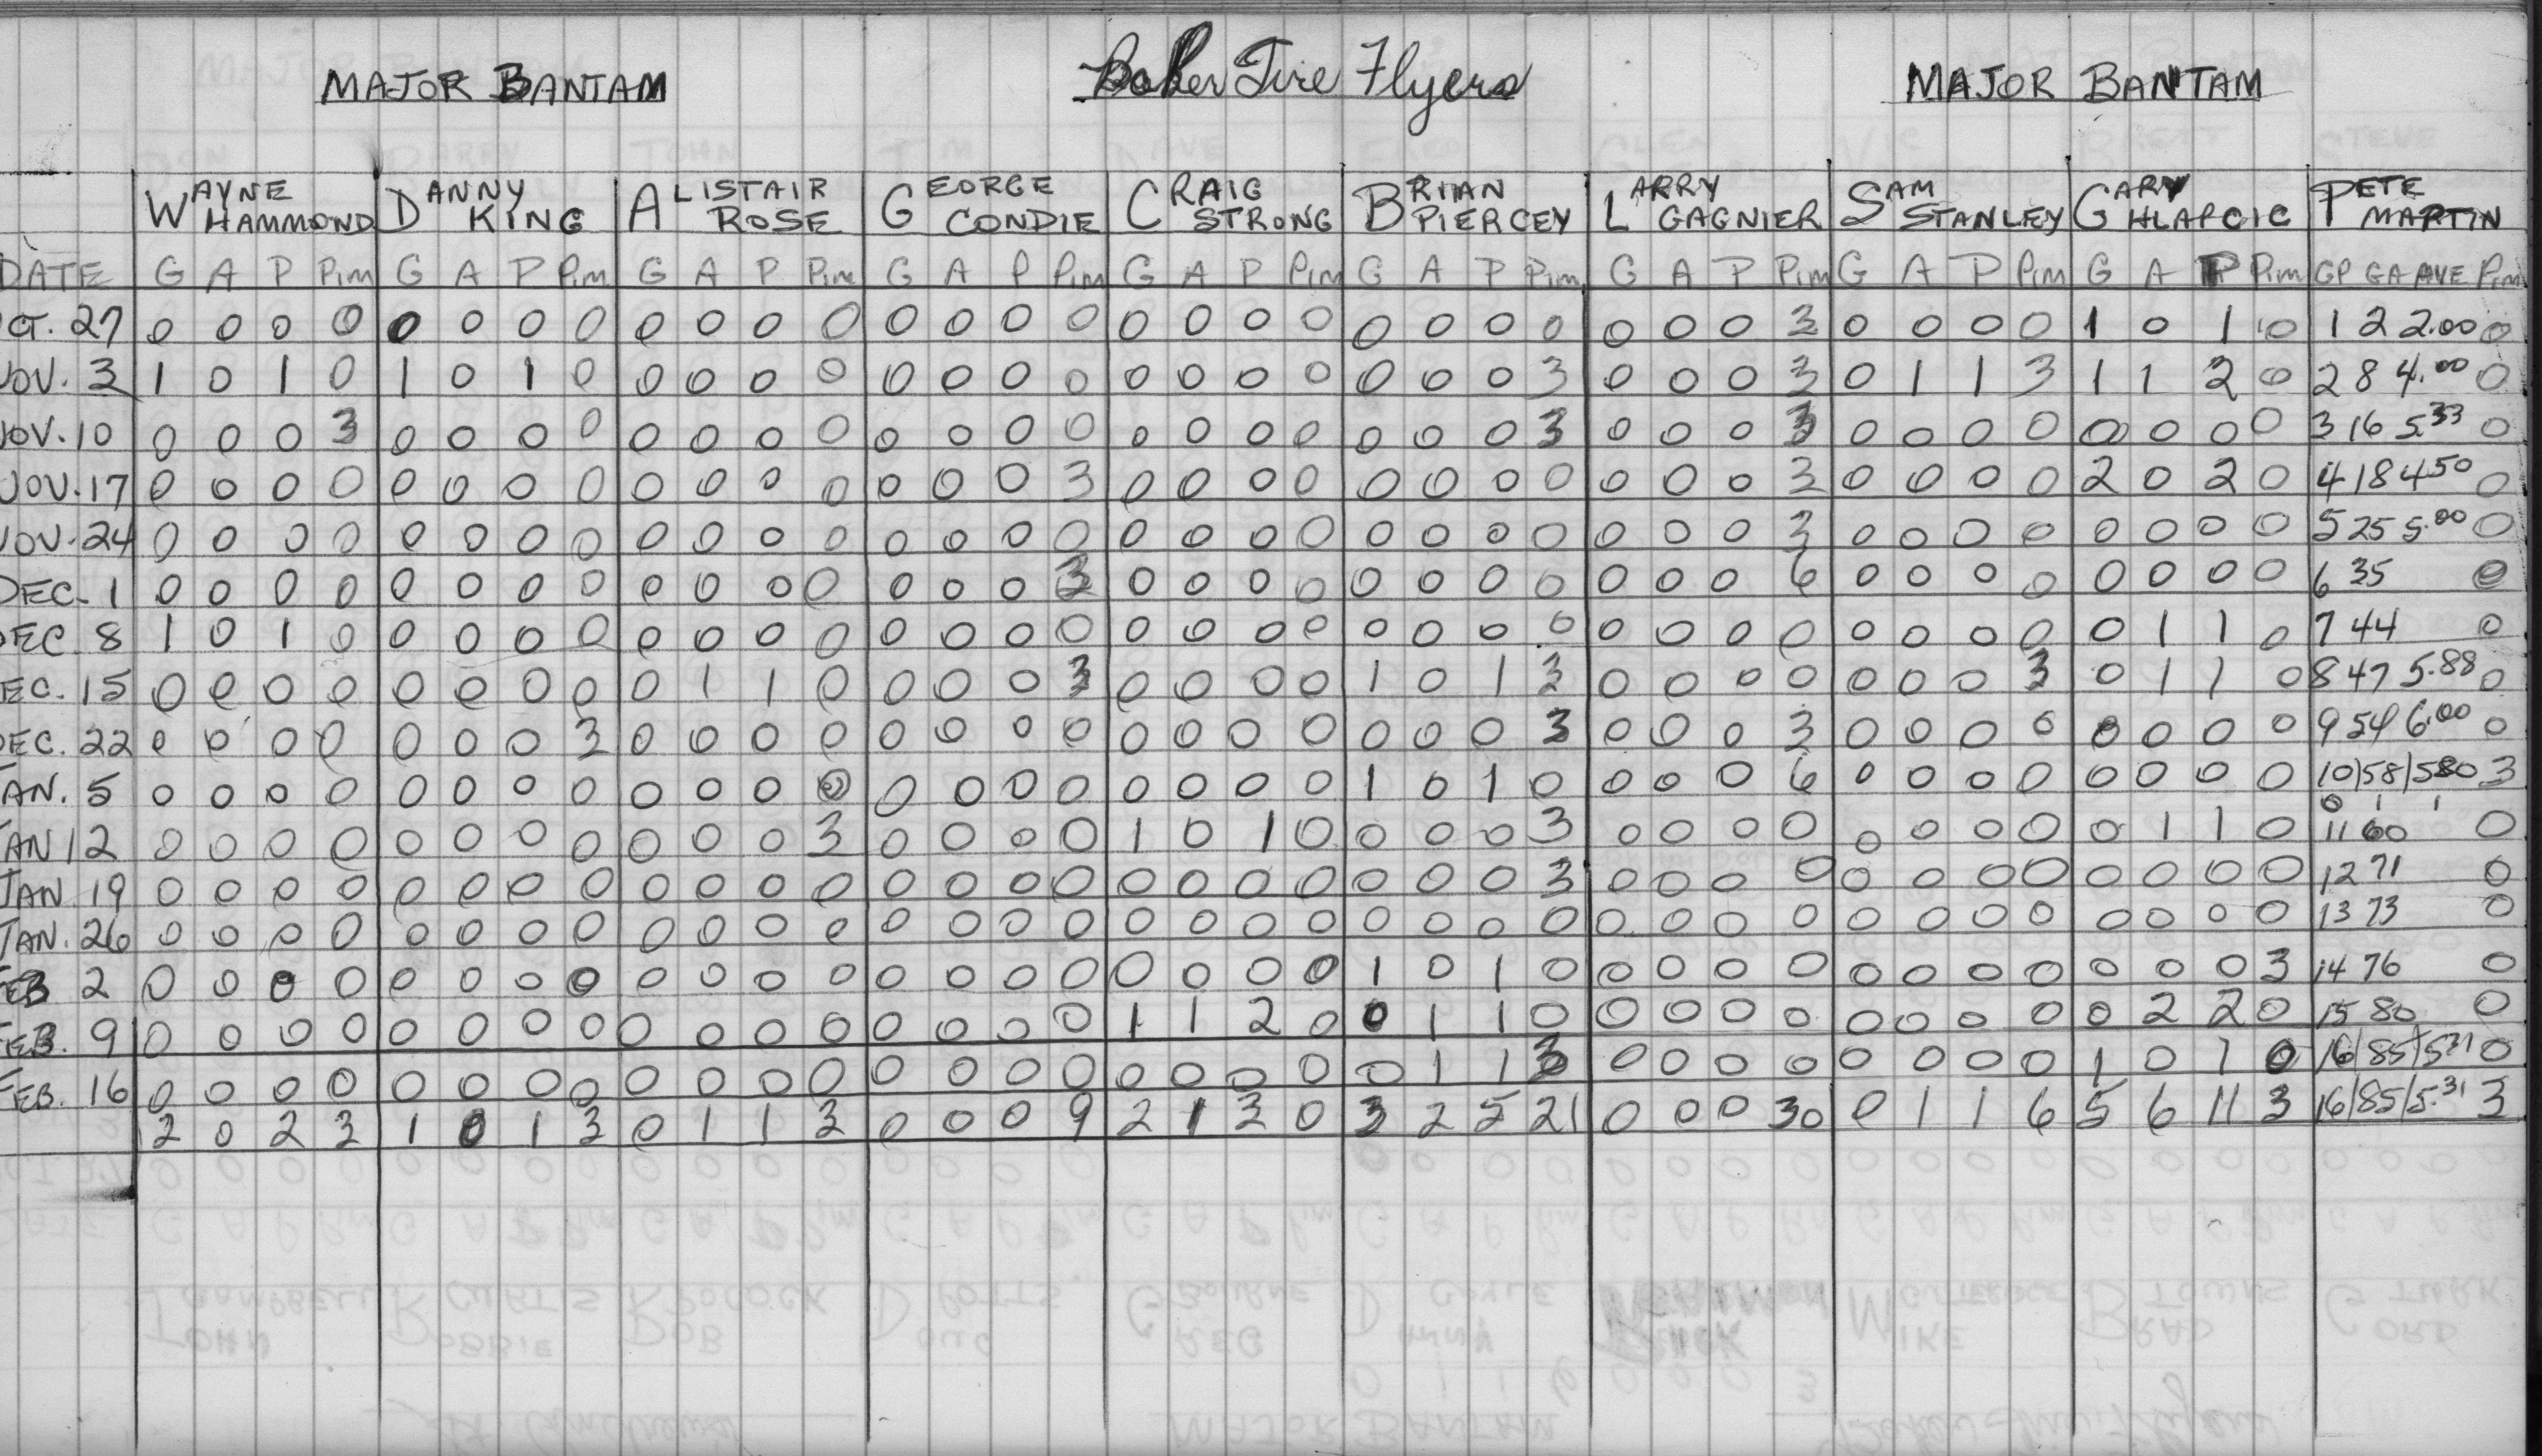 MAJOR BANTAM Baker Tire Flyers MAJOR BANTAM
WAYNE HAMMOND DANNY KING ALISTAIR ROSE GEORGE CONDIE CRAIG STRONG BRIAN PIERCEY LARRY GAGNIER SAM STANLEY GARY HLAPCIC PETE MARTIN
DATE G A P Pim G A P Pim G A P Pim G A P Pim G A P Pim G A P Pim G A P Pim G A P Pim G A P Pim GP GA AVE Pim
CT. 27 0 0 0 0 0 0 0 0 0 0 0 0 0 0 0 0 0 0 0 0 0 0 0 0 0 0 0 3 0 0 0 0 1 0 1 0 1 2 2.00 0
NOV. 3 1 0 1 0 1 0 1 0 0 0 0 0 0 0 0 0 0 0 0 0 0 0 0 3 0 0 0 3 0 1 1 3 1 1 2 0 2 8 4.00 0
NOV. 10 0 0 0 3 0 0 0 0 0 0 0 0 0 0 0 0 0 0 0 0 0 0 0 3 0 0 0 3 0 0 0 0 0 0 0 0 3 16 5.33 0
NOV. 17 0 0 0 0 0 0 0 0 0 0 0 0 0 0 0 3 0 0 0 0 0 0 0 0 0 0 0 3 0 0 0 0 2 0 2 0 4 18 4.50 0
NOV. 24 0 0 0 0 0 0 0 0 0 0 0 0 0 0 0 0 0 0 0 0 0 0 0 0 0 0 0 3 0 0 0 0 0 0 0 0 5 25 5.00 0
DEC. 1 0 0 0 0 0 0 0 0 0 0 0 0 0 0 0 3 0 0 0 0 0 0 0 0 0 0 0 6 0 0 0 0 0 0 0 0 6 35 0
DEC 8 1 0 1 0 0 0 0 0 0 0 0 0 0 0 0 0 0 0 0 0 0 0 0 0 0 0 0 0 0 0 0 0 0 1 1 0 7 44 0
EC. 15 0 0 0 0 0 0 0 0 0 1 1 0 0 0 0 3 0 0 0 0 1 0 1 3 0 0 0 0 0 0 0 3 0 1 1 0 8 47 5.88 0
EC. 22 0 0 0 0 0 0 0 3 0 0 0 0 0 0 0 0 0 0 0 0 0 0 0 3 0 0 0 3 0 0 0 0 0 0 0 0 9 54 6.00 0
AN. 5 0 0 0 0 0 0 0 0 0 0 0 0 0 0 0 0 0 0 0 0 1 0 1 0 0 0 0 6 0 0 0 0 0 0 0 0 10/58/5.80 3
0 1 1
JAN 12 0 0 0 0 0 0 0 0 0 0 0 3 0 0 0 0 1 0 1 0 0 0 0 3 0 0 0 0 0 0 0 0 0 1 1 0 11 60 0
JAN 19 0 0 0 0 0 0 0 0 0 0 0 0 0 0 0 0 0 0 0 0 0 0 0 3 0 0 0 0 0 0 0 0 0 0 0 0 12 71 0
JAN. 26 0 0 0 0 0 0 0 0 0 0 0 0 0 0 0 0 0 0 0 0 0 0 0 0 0 0 0 0 0 0 0 0 0 0 0 0 13 73 0
EB 2 0 0 0 0 0 0 0 0 0 0 0 0 0 0 0 0 0 0 0 0 1 0 1 0 0 0 0 0 0 0 0 0 0 0 0 3 14 76 0
FEB. 9 0 0 0 0 0 0 0 0 0 0 0 0 0 0 0 0 1 1 2 0 0 1 1 0 0 0 0 0 0 0 0 0 0 2 2 0 15 80 0
FEB. 16 0 0 0 0 0 0 0 0 0 0 0 0 0 0 0 0 0 0 0 0 0 1 1 3 0 0 0 0 0 0 0 0 1 0 1 0 16/85/5.31 0
2 0 2 3 1 0 1 3 0 1 1 3 0 0 0 9 2 1 3 0 3 2 5 21 0 0 0 30 0 1 1 6 5 6 11 3 16/85/5.31 3